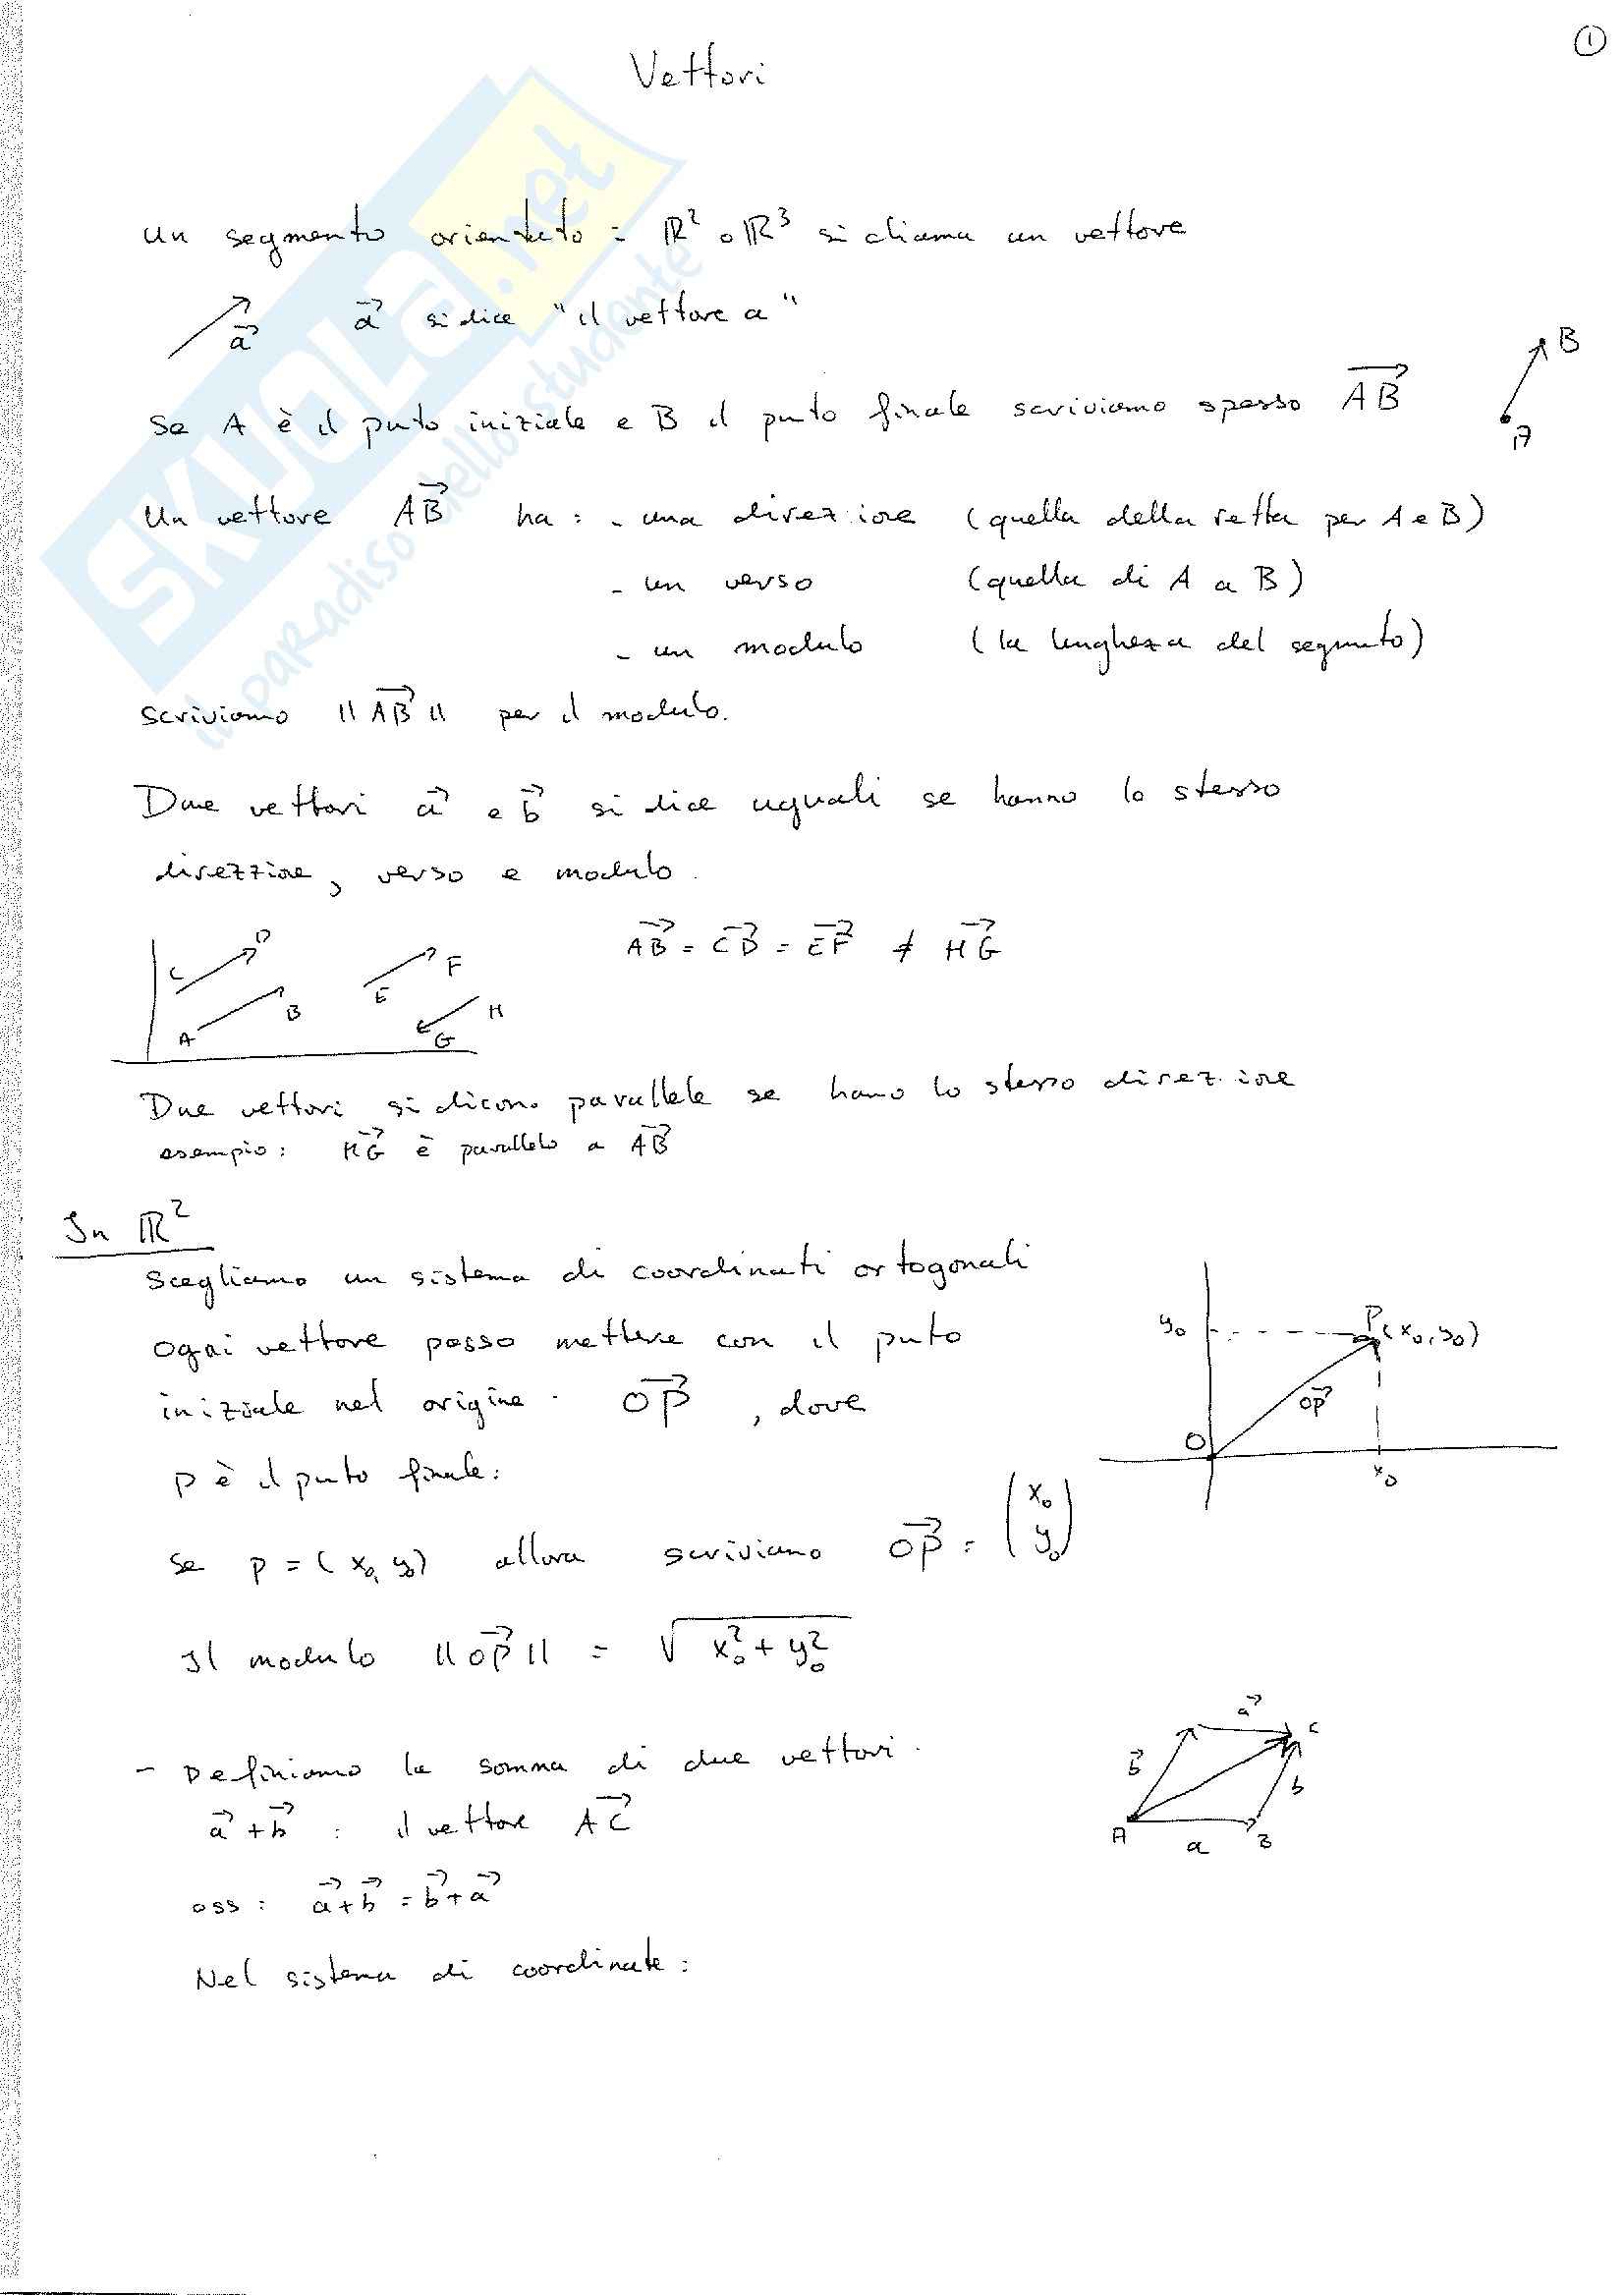 ①
Vettori
Un segmento orientato = ℝ² o ℝ³ si chiama un vettore
a⃗ a⃗ si dice "il vettore a"
Se A è il puto iniziale e B il puto finale scriviamo spesso AB⃗
B
A
Un vettore AB⃗ ha : - una direzione (quella della retta per A e B)
- un verso (quella di A a B)
- un modulo (la lungheza del segmento)
scriviamo ||AB⃗|| per il modulo.
Due vettori a⃗ e b⃗ si dice uguali se hanno lo stesso
direzzione, verso e modulo.
AB⃗ = CD⃗ = EF⃗ ≠ HG⃗
C D
E F
A B
H G
Due vettori si dicono parallele se hano lo stesso direzione
esempio: HG⃗ è parallelo a AB⃗
In ℝ²
Scegliamo un sistema di coordinati ortogonali
ogni vettore posso mettere con il puto
iniziale nel origine. OP⃗ , dove
P è il puto finale.
y₀ P(x₀, y₀)
OP⃗
O x₀
Se P = (x₀, y₀) allora scriviamo OP⃗ = (x₀ y₀)
Il modulo ||OP⃗|| = √x₀² + y₀²
- Definiamo la somma di due vettori.
a⃗ + b⃗ : il vettore AC⃗
a⃗ C
b⃗ b
A a B
oss : a⃗ + b⃗ = b⃗ + a⃗
Nel sistema di coordinate :
SKUOLA.net
il paradiso dello studente